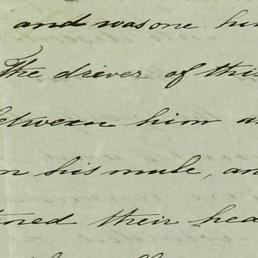 and was one hu
The driver of this
between him a
n his mule, an
ned their hea